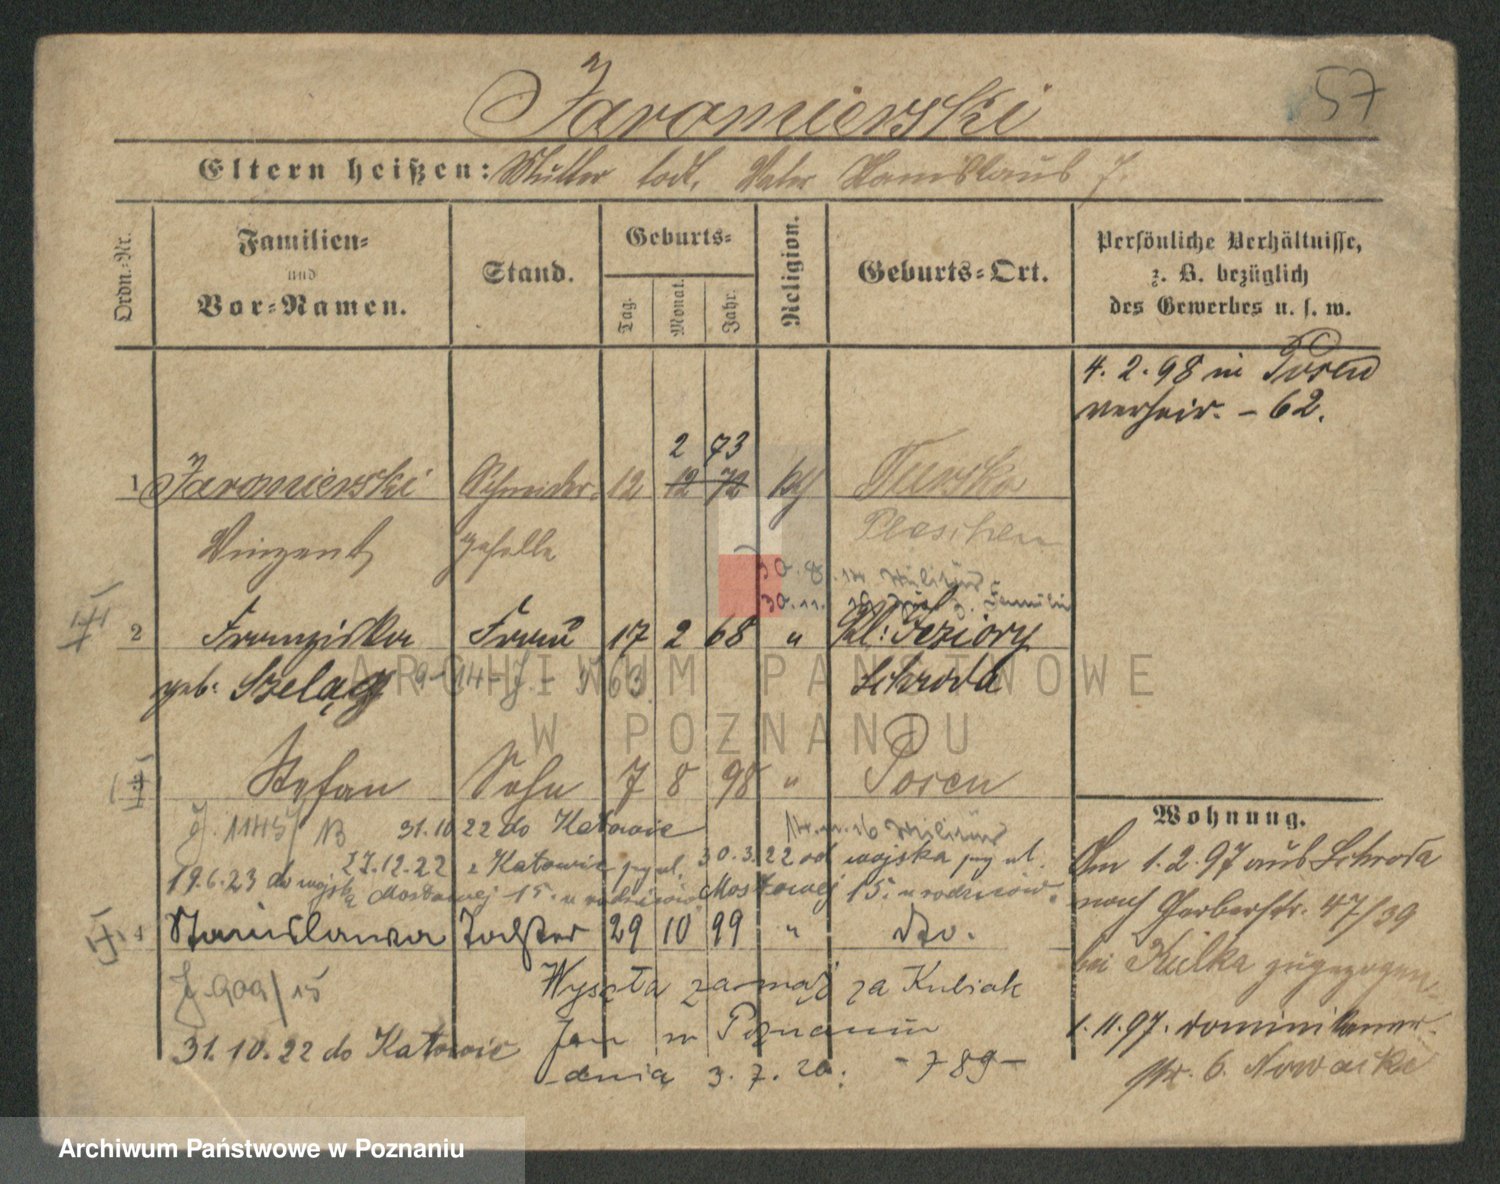 57
Jaromierski
Eltern heißen: Mutter tod, Vater Stanislaus J.
Ordn.-Nr.
Familien-
und
Vor-Namen.
Stand.
Geburts-
Tag.
Monat.
Jahr.
Religion.
Geburts-Ort.
Persönliche Verhältnisse,
z. B. bezüglich
des Gewerbes u. s. w.
4. 2. 98 in Posen
verheir. - 62.
2 73
1 Jaromierski Schneider- 12 12 72 kth Turska
Vinzent geselle Pleschen
30. 8. 14 Militär
30. 11. z. Familie
2 Franziska Frau 17 2 68 " Kl: Jeziory
geb. Szeląg 9-14-J- 63 Schroda
Stefan Sohn 7 8 98 " Posen
J. 1145/13 31.10 22 do Katowic 14.11.16 Militär
27.12.22 z Katowic przy ul. 30.3.22 od wojska przy ul.
19.6.23 do wojska Mostowej 15. u rodziców Mostowej 15. u rodziców.
4 Stanislawa Tochter 29 10 99 " Do.
J 900/15 Wyszła zamąż za Kubiak
Jan w Poznaniu
31.10.22 do Katowic dnia 3.7.20. -789-
Wohnung.
Am 1.2.97 aus Schroda
nach Gerberstr. 47/39
bei Kulka zugezogen
1.11.97. Dominikaner-
str. 6. Nowacka
ARCHIWUM PAŃSTWOWE
W POZNANIU
Archiwum Państwowe w Poznaniu